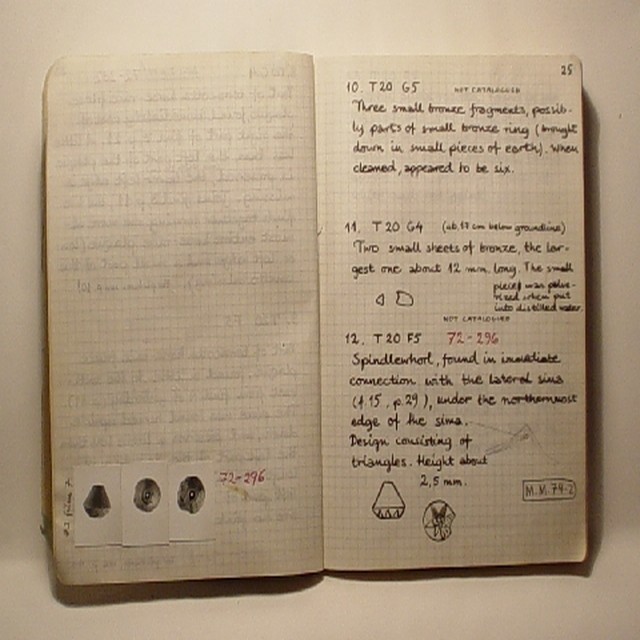 72-296
25
10. T20 G5 NOT CATALOGUED
Three small bronze fragments, possib-
ly parts of small bronze ring (brought
down in small pieces of earth). When
cleaned, appeared to be six.
11. T20 G4 (ab. 18 cm below groundline)
Two small sheets of bronze, the lar-
gest one about 12 mm. long. The small
piece was pulve-
rized when put
into distilled water.
NOT CATALOGUED
12. T20 F5 72-296
Spindlewhorl, found in immediate
connection with the lateral sima
(f. 15, p. 29), under the northernmost
edge of the sima.
Design consisting of
triangles. Height about
2,5 mm.
M.M. 74-2